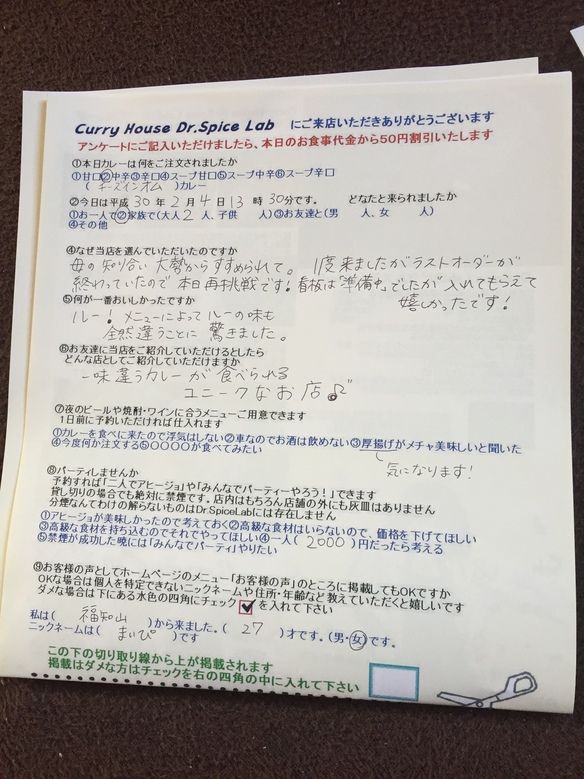 Curry House Dr.Spice Lab にご来店いただきありがとうございます
アンケートにご記入いただけましたら、本日のお食事代金から50円割引いたします
①本日カレーは何をご注文されましたか
①甘口②中辛③辛口④スープ甘口⑤スープ中辛⑥スープ辛口
(チーズインオム)カレー
②今日は平成30年2月4日13時30分です。 どなたと来られましたか
①お一人で②家族で(大人2人、子供 人)③お友達と(男 人、女 人)
④その他
④なぜ当店を選んでいただいたのですか
母の知り合い大勢からすすめられて。 1度来ましたがラストオーダーが
終わっていたので本日再挑戦です!看板は「準備中」でしたが入れてもらえて
嬉しかったです!
⑤何が一番おいしかったですか
ルー!メニューによってルーの味も
全然違うことに驚きました。
⑥お友達に当店をご紹介していただけるとしたら
どんな店としてご紹介していただけますか
一味違うカレーが食べられる
ユニークなお店♪
⑦夜のビールや焼酎・ワインに合うメニューご用意できます
1日前に予約いただければ仕入れます
①カレーを食べに来たので浮気はしない②車なのでお酒は飲めない③厚揚げがメチャ美味しいと聞いた
④今度何か注文する⑤〇〇〇〇が食べてみたい
気になります!
⑧パーティしませんか
予約すれば「二人でアヒージョ」や「みんなでパーティーやろう!」できます
貸し切りの場合でも絶対に禁煙です。店内はもちろん店舗の外にも灰皿はありません
分煙なんてわけの解らないものはDr.SpiceLabには存在しません
①アヒージョが美味しかったので考えておく②高級な食材はいらないので、価格を下げてほしい
③高級な食材を持ち込むのでそれでやってほしい④一人(2000)円だったら考える
⑤禁煙が成功した暁には「みんなでパーティ」やりたい
⑨お客様の声としてホームページのメニュー「お客様の声」のところに掲載してもOKですか
OKな場合は個人を特定できないニックネームや住所・年齢など教えていただくと嬉しいです
ダメな場合は下にある水色の四角にチェック☑を入れて下さい
私は(福知山)から来ました。(27)才です。(男・女)です。
ニックネームは(まいぴ)です
この下の切り取り線から上が掲載されます
掲載はダメな方はチェックを右の四角の中に入れて下さい